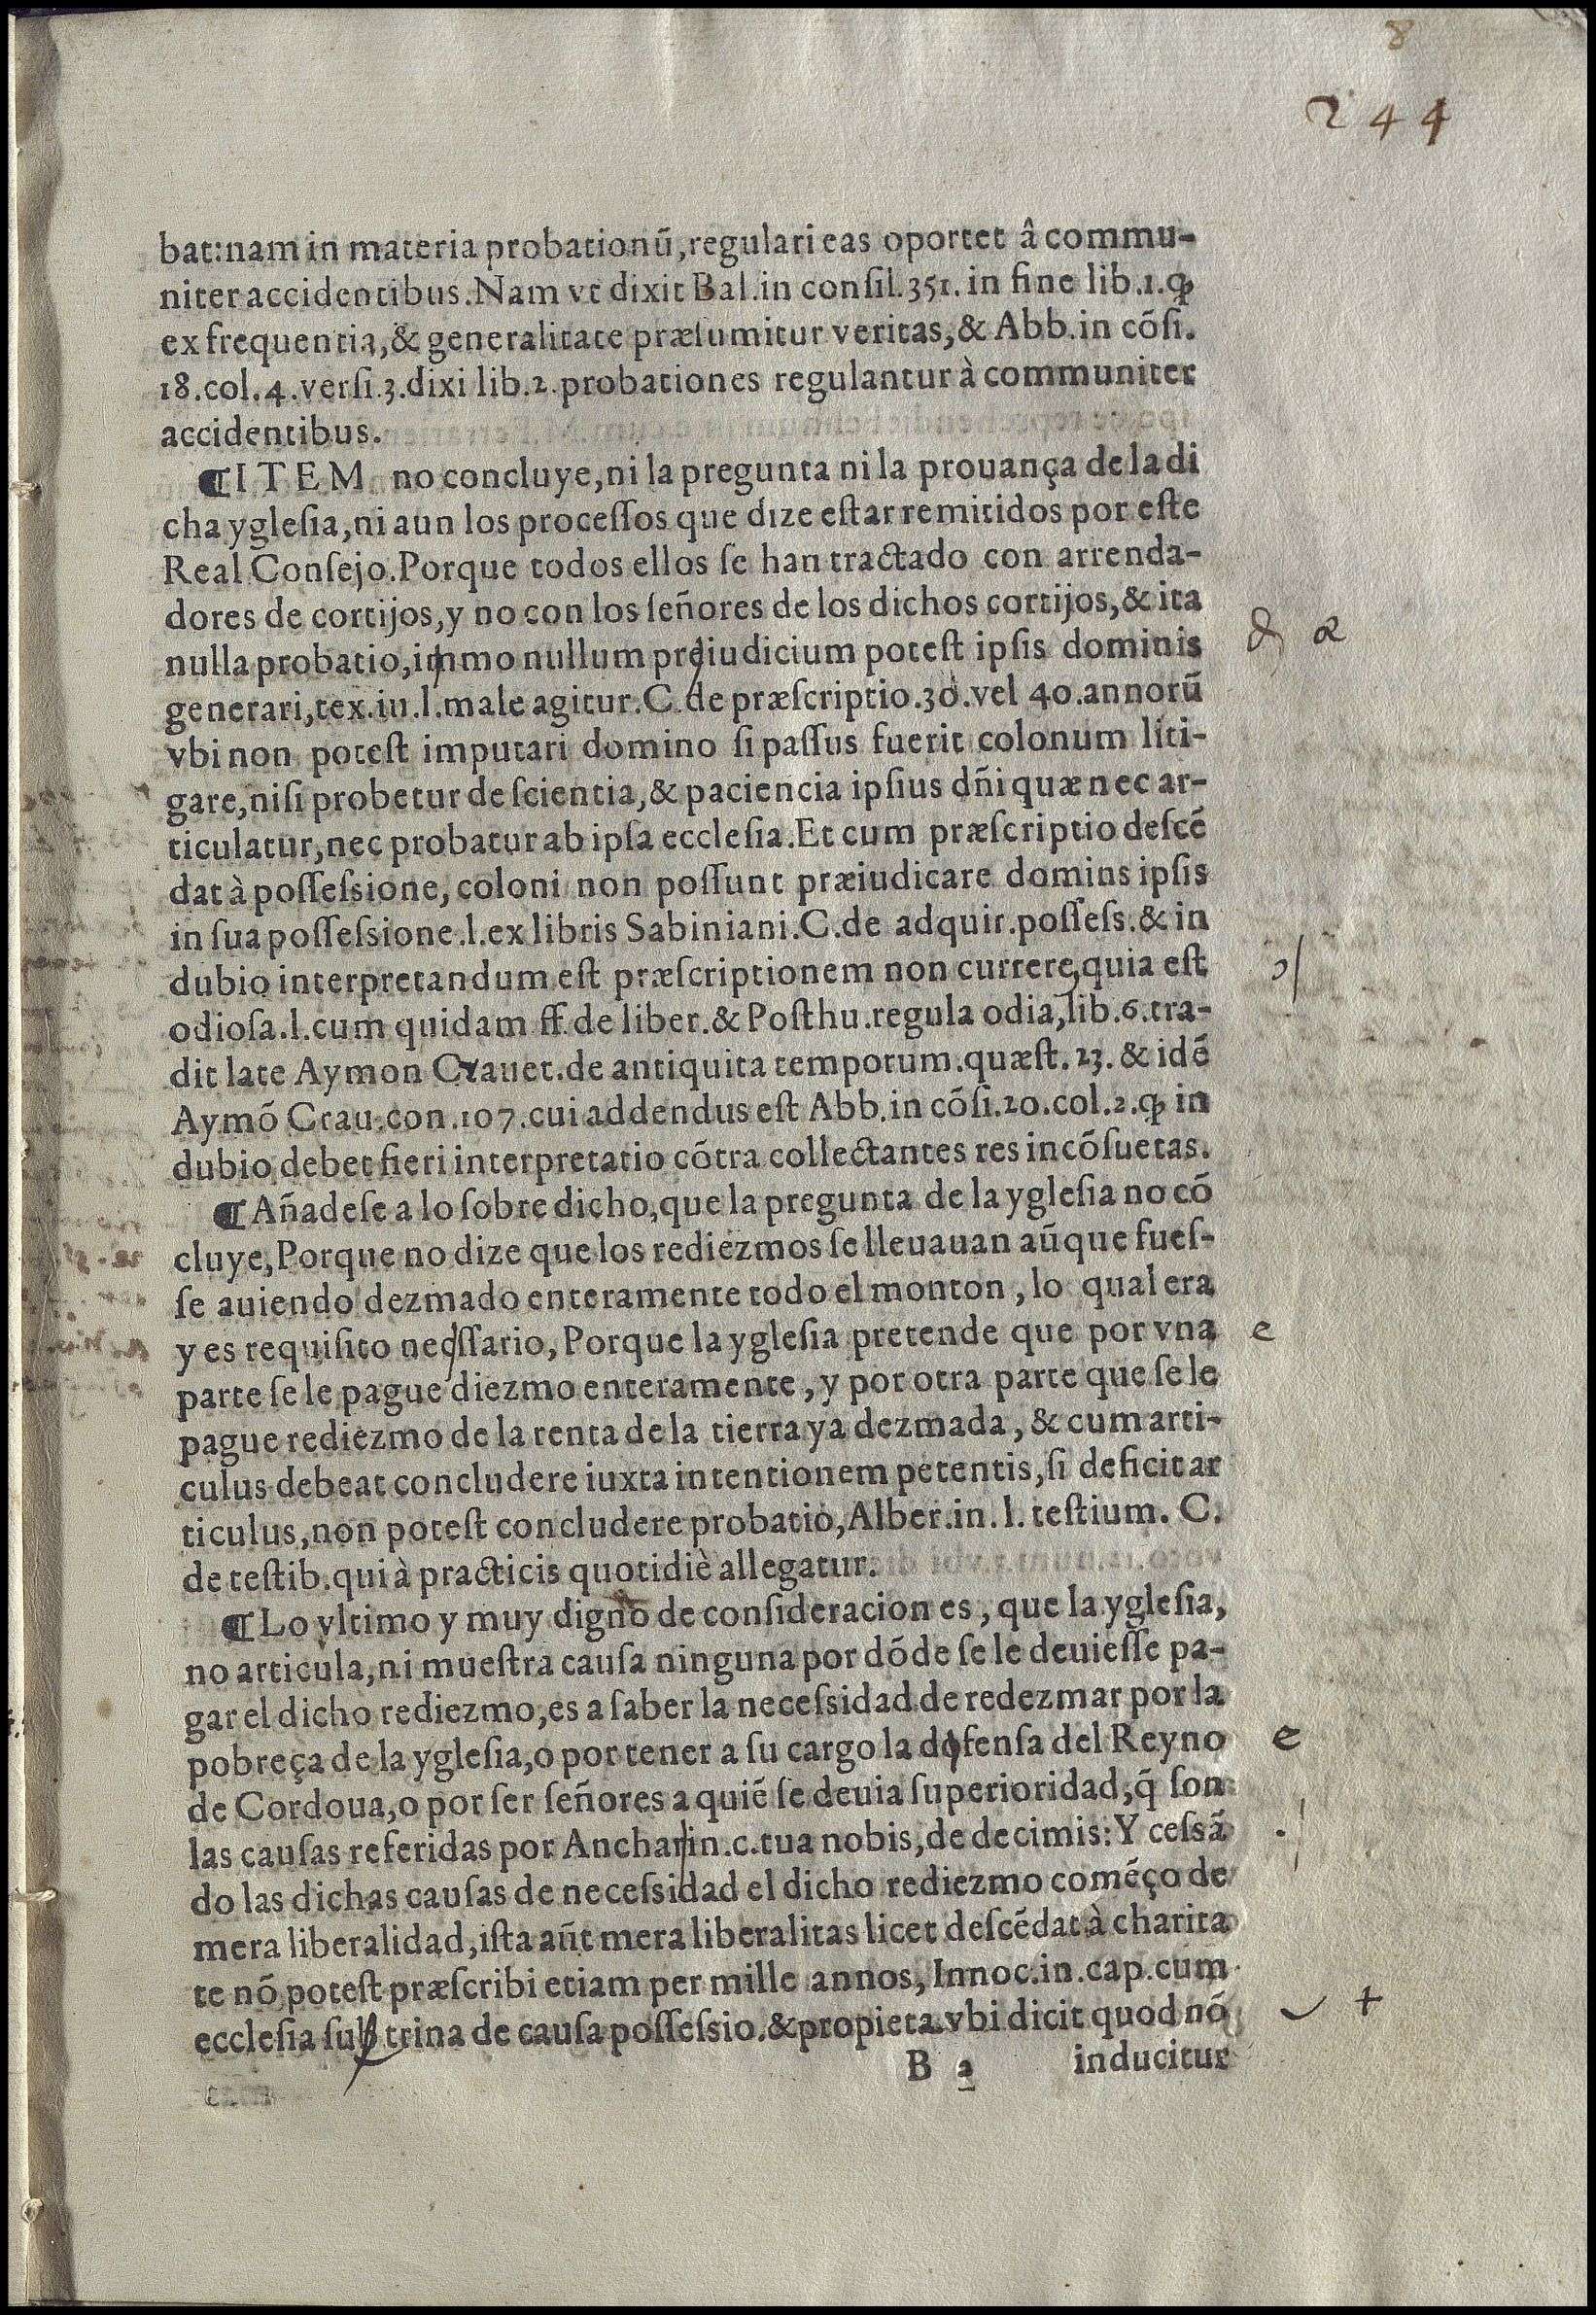 8
244
bat:nam in materia probationũ, regulari eas oportet â commu-
niter accidentibus. Nam vt dixit Bal. in conſil. 351. in fine lib. 1. ꝙ
ex frequentia, & generalitate præſumitur veritas, & Abb. in cõſi.
18. col. 4. verſi. 3. dixi lib. 2. probationes regulantur à communiter
accidentibus.
¶ ITEM no concluye, ni la pregunta ni la prouança de la di
cha ygleſia, ni aun los proceſſos que dize eſtar remitidos por eſte
Real Conſejo. Porque todos ellos ſe han tractado con arrenda-
dores de cortijos, y no con los ſeñores de los dichos cortijos, & ita
nulla probatio, immo nullum preiudicium poteſt ipſis dominis
generari, tex. in. l. male agitur. C. de præſcriptio. 30. vel 40. annorũ
vbi non poteſt imputari domino ſi paſſus fuerit colonum liti-
gare, niſi probetur de ſcientia, & paciencia ipſius dñi quæ nec ar-
ticulatur, nec probatur ab ipſa eccleſia. Et cum præſcriptio deſcẽ
dat à poſſeſsione, coloni non poſſunt præiudicare domins ipſis
in ſua poſſeſsione. l. ex libris Sabiniani. C. de adquir. poſſeſs. & in
dubio interpretandum eſt præſcriptionem non currere, quia eſt
odioſa. l. cum quidam ff. de liber. & Poſthu. regula odia, lib. 6. tra-
dit late Aymon Crauet. de antiquita temporum. quæſt. 23. & idẽ
Aymõ Crau. con. 107. cui addendus eſt Abb. in cõſi. 20. col. 2. ꝙ in
dubio debet fieri interpretatio cõtra collectantes res incõſuetas.
¶ Añadeſe a lo ſobre dicho, que la pregunta de la ygleſia no cõ
cluye, Porque no dize que los rediezmos ſe lleuauan aũque fueſ-
ſe auiendo dezmado enteramente todo el monton, lo qual era
y es requiſito necſſario, Porque la ygleſia pretende que por vna e
parte ſe le pague diezmo enteramente, y por otra parte que ſe le
pague rediezmo de la renta de la tierra ya dezmada, & cum arti-
culus debeat concludere iuxta intentionem petentis, ſi deficit ar
ticulus, non poteſt concludere probatio, Alber. in. l. teſtium. C.
de teſtib. qui à practicis quotidiè allegatur.
¶ Lo vltimo y muy digno de conſideracion es, que la ygleſia,
no articula, ni mueſtra cauſa ninguna por dõde ſe le deuieſſe pa-
gar el dicho rediezmo, es a ſaber la neceſsidad de redezmar por la
pobreça de la ygleſia, o por tener a ſu cargo la dofenſa del Reyno e
de Cordoua, o por ſer ſeñores a quiẽ ſe deuia ſuperioridad, q̃ ſon
las cauſas referidas por Anchar in. c. tua nobis, de decimis: Y ceſsã
do las dichas cauſas de neceſsidad el dicho rediezmo comẽço de
mera liberalidad, iſta aũt mera liberalitas licet deſcẽdat à charita
te nõ poteſt præſcribi etiam per mille annos, Innoc. in. cap. cum
eccleſia ſub trina de cauſa poſſeſsio. & propieta. vbi dicit quod nõ +
B 2 inducitur